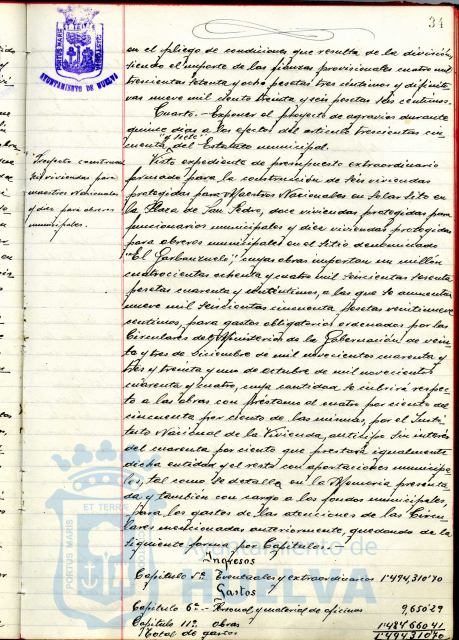 34
PORTUS MARIS
ET TERRE CUSTODIA
AYUNTAMIENTO DE HUELVA
en el pliego de condiciones que resulta de la división,
siendo el importe de las fianzas provisionales cuatro mil
trescientas setenta y ocho pesetas tres céntimos y definiti-
vas nueve mil ciento treinta y seis pesetas seis céntimos.
Cuarto.- Exponer el proyecto de agravios durante
quince días a los efectos del artículo trescientos cin-
y siete
cuenta del Estatuto municipal.
Proyecto construcción
seis viviendas para
maestros Nacionales
y diez para obreros
municipales.
Visto expediente de presupuesto extraordinario
formado para la construcción de seis viviendas
protegidas para Maestros Nacionales en Solar sito en
la Plaza de San Pedro, doce viviendas protegidas para
funcionarios municipales y diez viviendas protegidas
para obreros municipales en el sitio denominado
"El Garbanzuelo", cuyas obras importan un millón
cuatrocientas ochenta y cuatro mil seiscientas sesenta
pesetas cuarenta y un céntimos, a las que se aumentan
nueve mil seiscientas cincuenta pesetas veintinueve
céntimos, para gastos obligatorios ordenados por las
Circulares del Ministerio de la Gobernación de vein-
te y tres de Diciembre de mil novecientos cuarenta y
tres y treinta y uno de octubre de mil novecientos
cuarenta y cuatro, cuya cantidad se cubrirá respec-
to a las obras con préstamo al cuatro por ciento del
cincuenta por ciento de las mismas, por el Insti-
tuto Nacional de la Vivienda, anticipo sin interés
del cuarenta por ciento que prestará igualmente
dicha entidad y el resto con aportaciones municipa-
les, tal como se detalla en la Memoria presenta-
da y también con cargo a los fondos municipales,
para los gastos de las atenciones de las Circu-
lares mencionadas anteriormente, quedando de la
siguiente forma por Capítulos:
Ingresos
Capítulo 5º Eventuales y extraordinarios 1.494,310'70
Gastos
Capítulo 6º.- Personal y material de oficinas 9,650'29
Capítulo 11º. obras 1.484,660'41
Total de gastos 1.494,310'70
PORTUS MARIS
ET TERRE
Ayuntamiento de
HUELVA